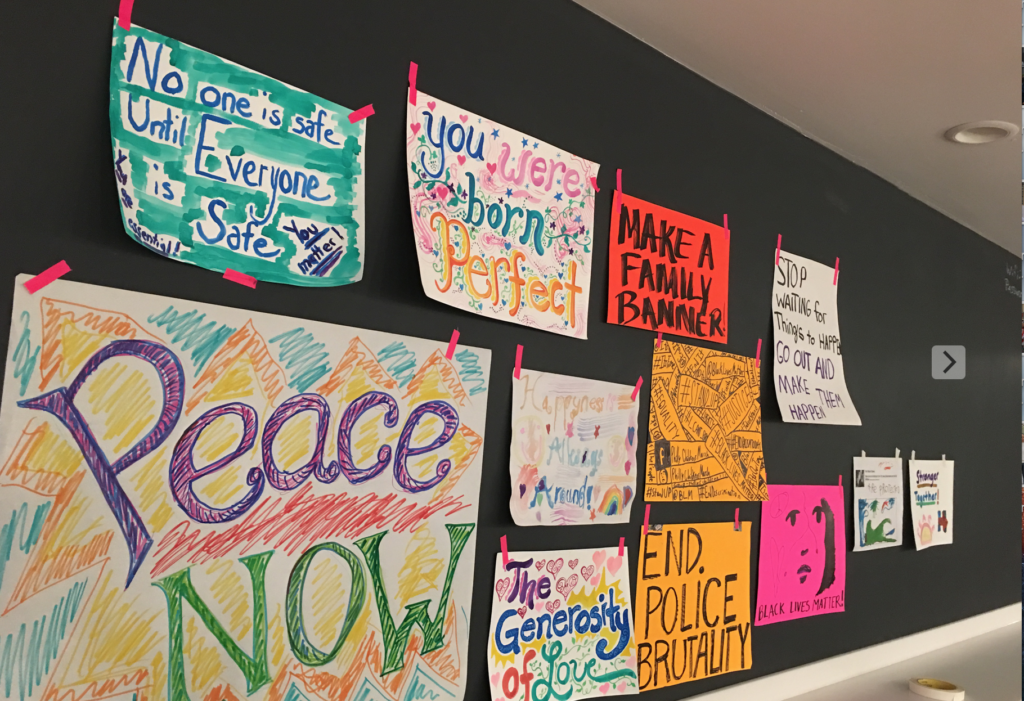 No one is safe
Until Everyone
is
Safe
essential!
You
matter!
you were
born
Perfect
MAKE A
FAMILY
BANNER
STOP
WAITING for
Things to HAPPE
GO OUT AND
MAKE THEM
HAPPEN
Peace
NOW
Happiness is
Always
Around
The
Generosity
of Love
END.
POLICE
BRUTALITY
BLACK LIVES MATTER!
Stronger
Together!